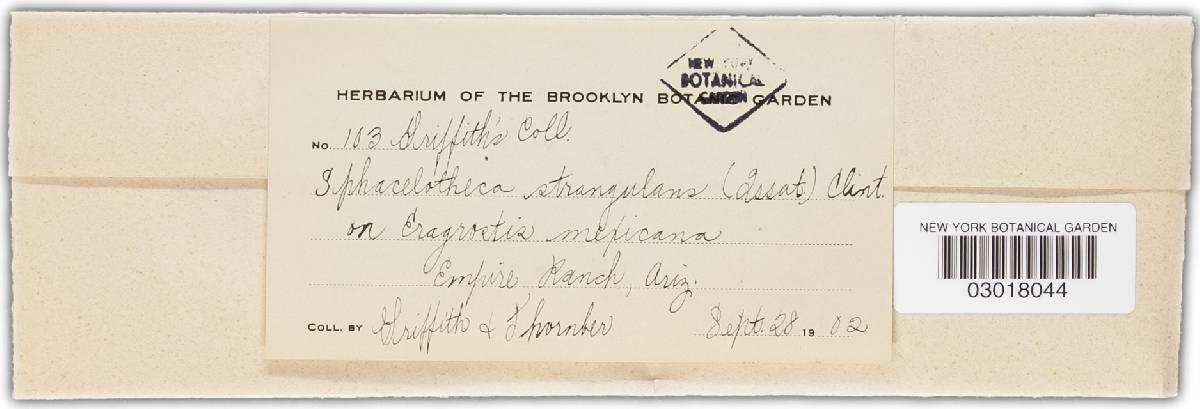 NEW YORK
BOTANICAL
GARDEN
HERBARIUM OF THE BROOKLYN BOTANIC GARDEN
No. 103 Griffith's Coll.
Sphacelotheca strangulans (Issat.) Clint.
on Eragrostis mexicana
Empire Ranch, Ariz.
COLL. BY Griffith & Thornber Sept. 28 1902
NEW YORK BOTANICAL GARDEN
03018044